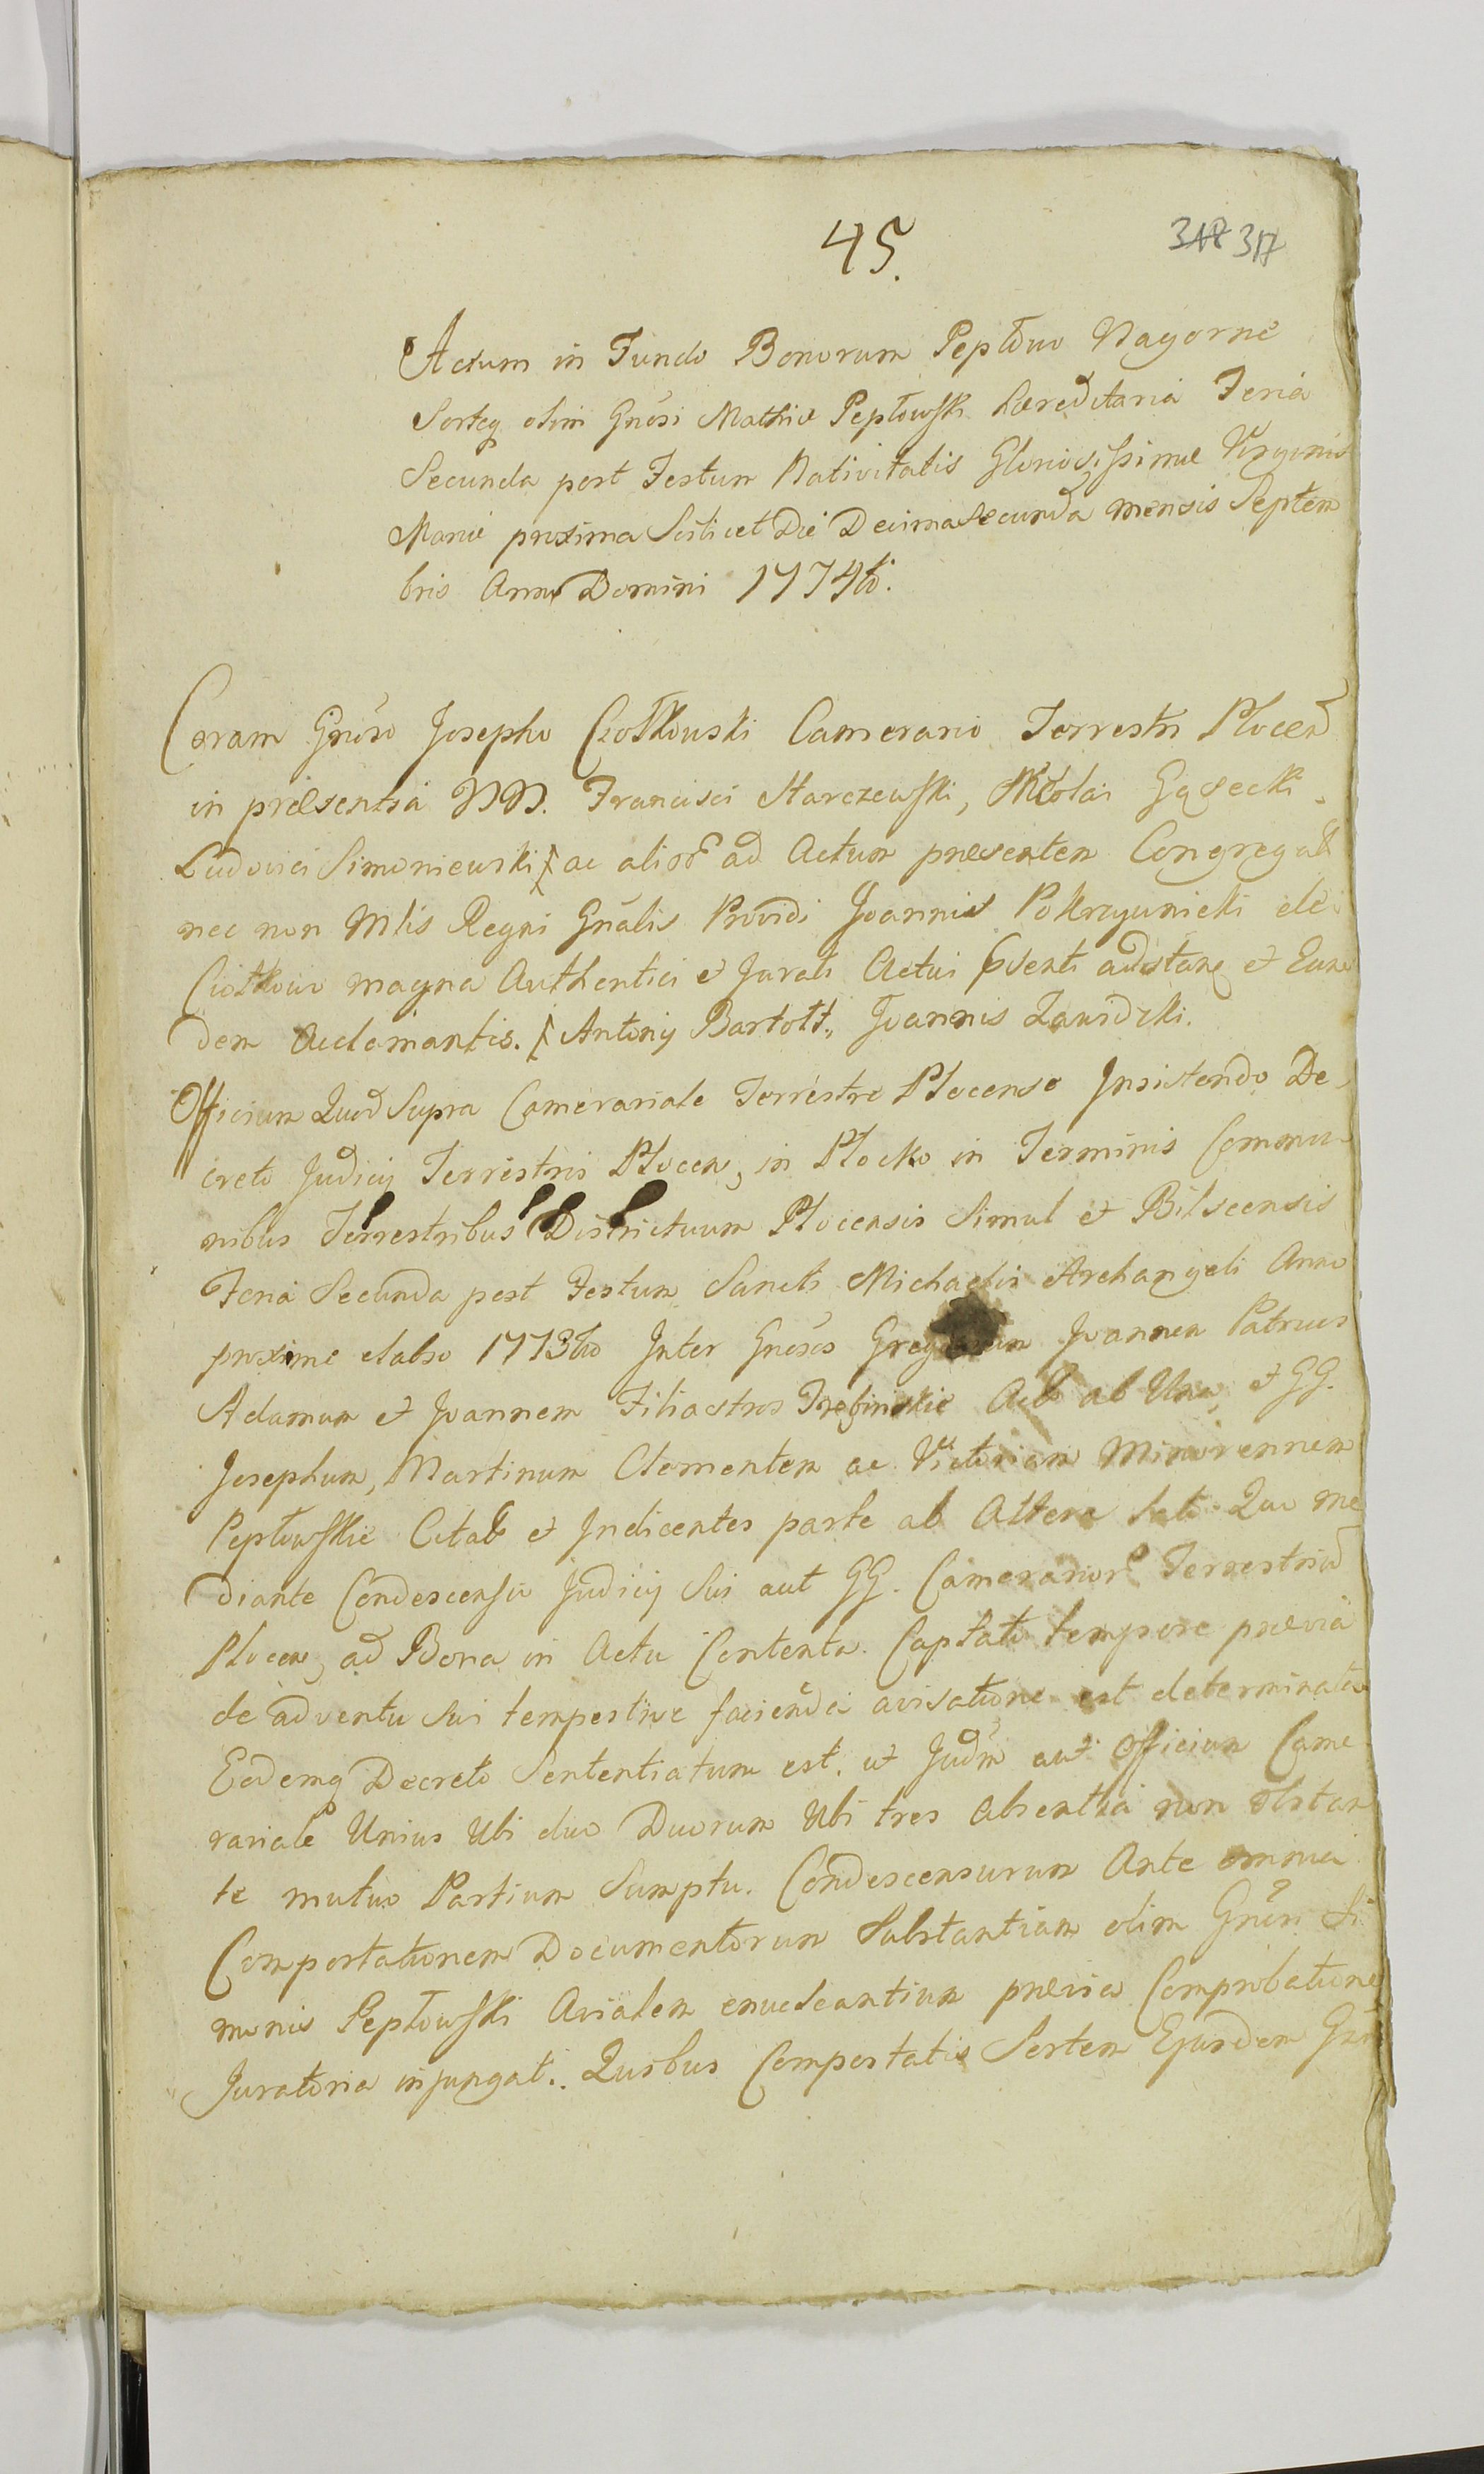 45.
317
Actum in Fundo Bonorum Peptowo Nagorne
Sorteq olim Gnosi Mathiæ Pepłowski hæreditaria Feria
Secunda post Festum Nativitatis Gloriosissimæ Virginis
Mariæ proxima Scilicet Die Decima Secunda mensis Septem
bris Anno Domini 1774to.
Coram Gnoso Josepho Ciołkowski Camerario Terrestri Plocen
in præsentia NN. Francisci Starczewski, Nicolai Gąsecki
Ludovici Simoniewski ac alior ad Actum præsentem Congregat
nec non Mlis Regni Gnalis Providi Joannis de
Ciołkowo magna Authentici et Jurati Actui pventi adstanq et Eun
dem Aclamantis. Antonij Bartołt, Joannis Zawidzki.
Officium Quod Supra Camerariale Terrestre Plocense Insistendo De
creto Judicij Terrestris Plocen, in Plocko in Terminis Commu
nibus Terrestribus Districtuum Plocensis Simul et Bilscensis
Feria Secunda post Festum Sancti Michaelis Archangeli Anno
proxime elabso 1773tio Inter Gnosos Joannem Patrues
Adamum et Joannem Filiastros Trębinskie Act ab Una, et GG.
Josephum, Martinum Clementem ac Victoriam Minorennem
Pepłowskie Citat et Indicentes parte ab Altera lato. Quo me
diante Condescensu Judicij Sui aut GG. Camerarior Terrestriu
Plocen, ad Bona in Actu Contenta. Captato tempore prævia
de adventu Sui tempestive facienda avisatione est determinata
Eodemq Decreto Sententiatum est. ut Judm aut Officium Came
rariale Unius Ubi duo Duorum Ubi tres absentia non obstan
te mutuo Partium Sumptu. Condescensurum Ante omnia
Comportationem Documentorum Substantiam olim Gnosi Si
monis Pepłowski Avialem enucleantium prævia Comprobatione
Juratoria injungat. Quibus Comportatis Sortem Ejusdem Gn